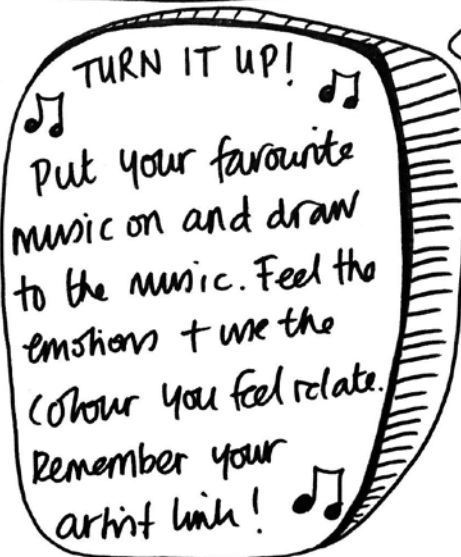 TURN IT UP!
Put your favourite
music on and draw
to the music. Feel the
emotions + use the
colour you feel relate.
Remember your
artist link!